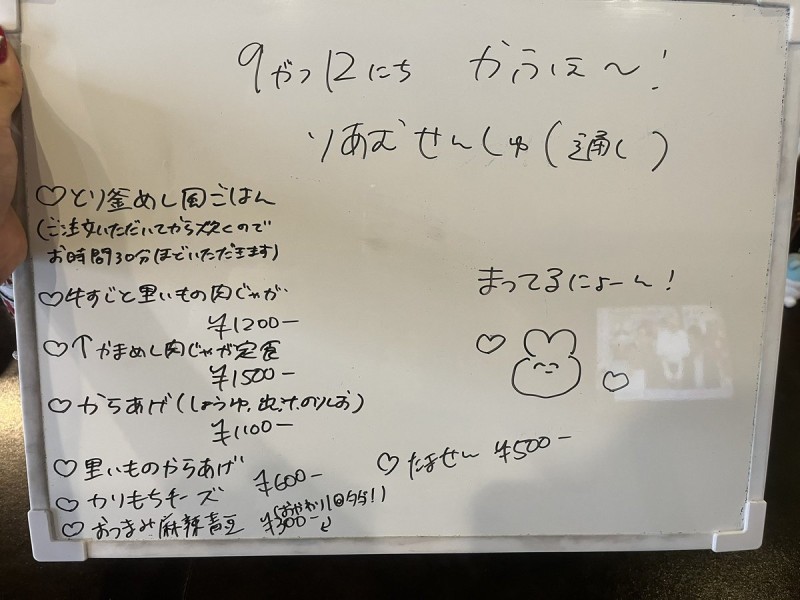 9がつ12にち かふぇ〜!
りあむせんしゅ(通し)
♡とり釜めし風ごはん
(ご注文いただいてから炊くので
お時間30分ほどいただきます)
♡牛すじと里いもの肉じゃが
¥1200-
♡↑かまめし肉じゃが定食
¥1500-
♡からあげ(しょうゆ、出汁、のりしお)
¥1100-
♡里いものからあげ
¥600-
♡かりもちチーズ
(おかわり1回
♡おつまみ麻辣青豆 ¥300-
まってるにょーん!
♡たません ¥500-